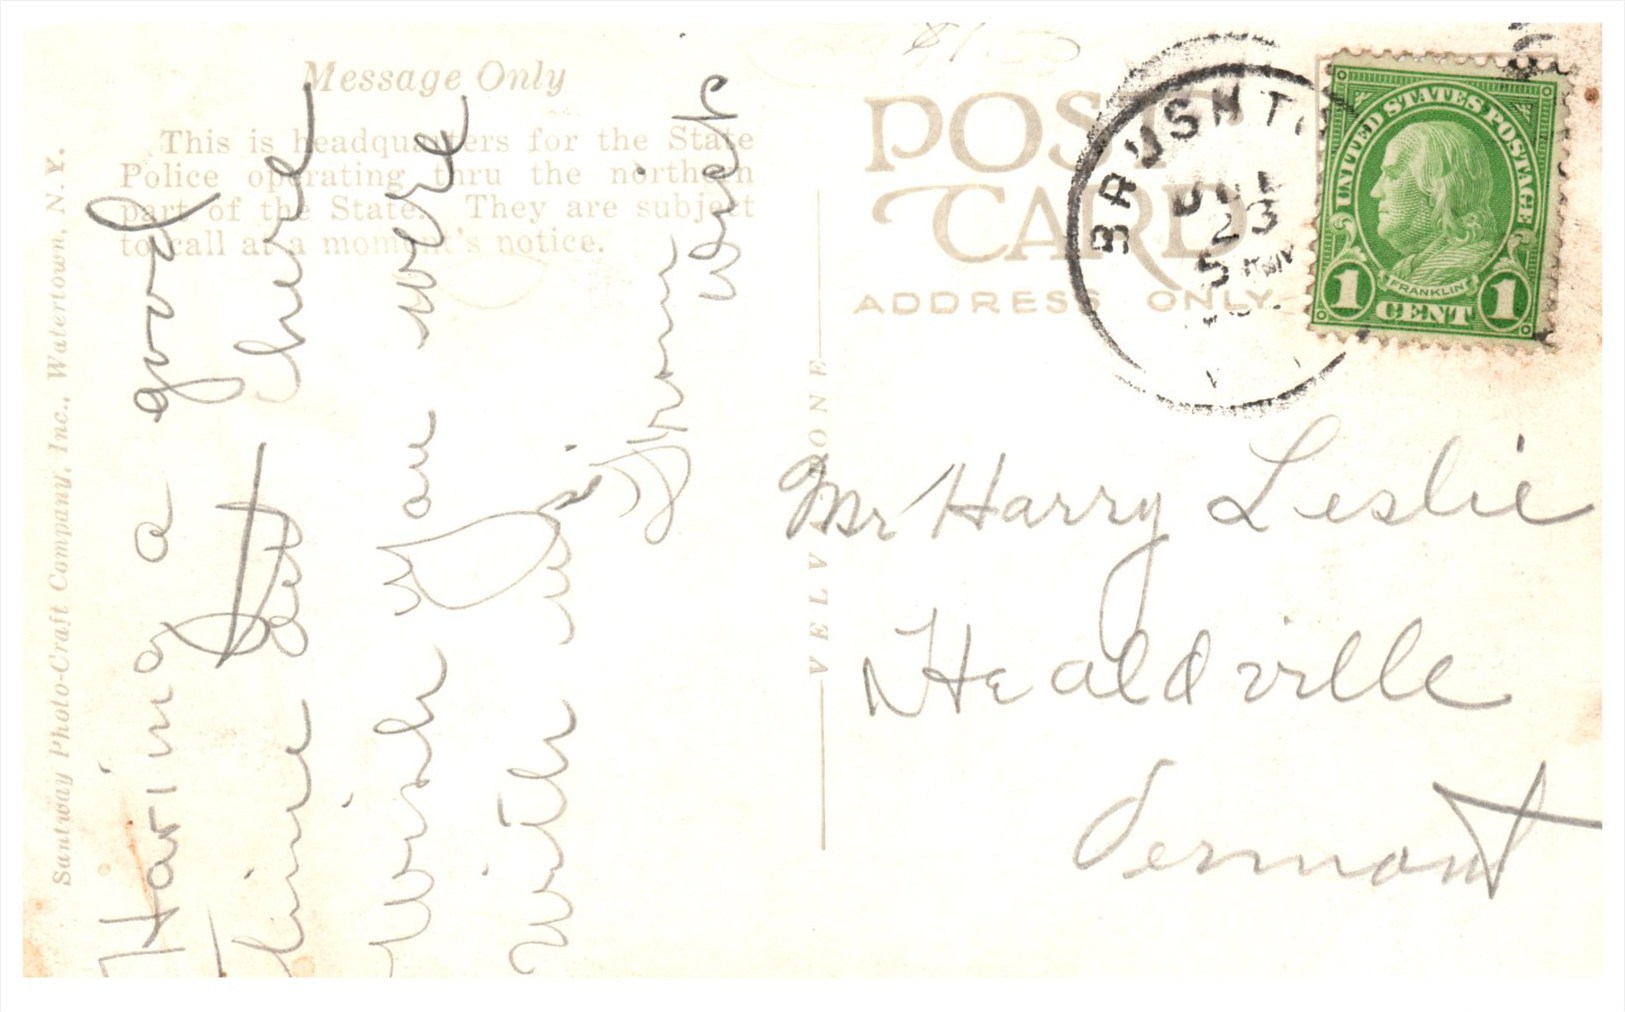 Message Only
This is headquarters for the State
Police operating thru the northern
part of the State. They are subject
to call at a moment's notice.
Santway Photo-Craft Company, Inc., Watertown, N. Y.
Having a good
time but here
Wish you were
with us
From
POST
CARD
ADDRESS ONLY
BRUSHT
23
5
UNITED STATES POSTAGE
FRANKLIN
1 CENT 1
Mr Harry Leslie
Healdville
Vermont